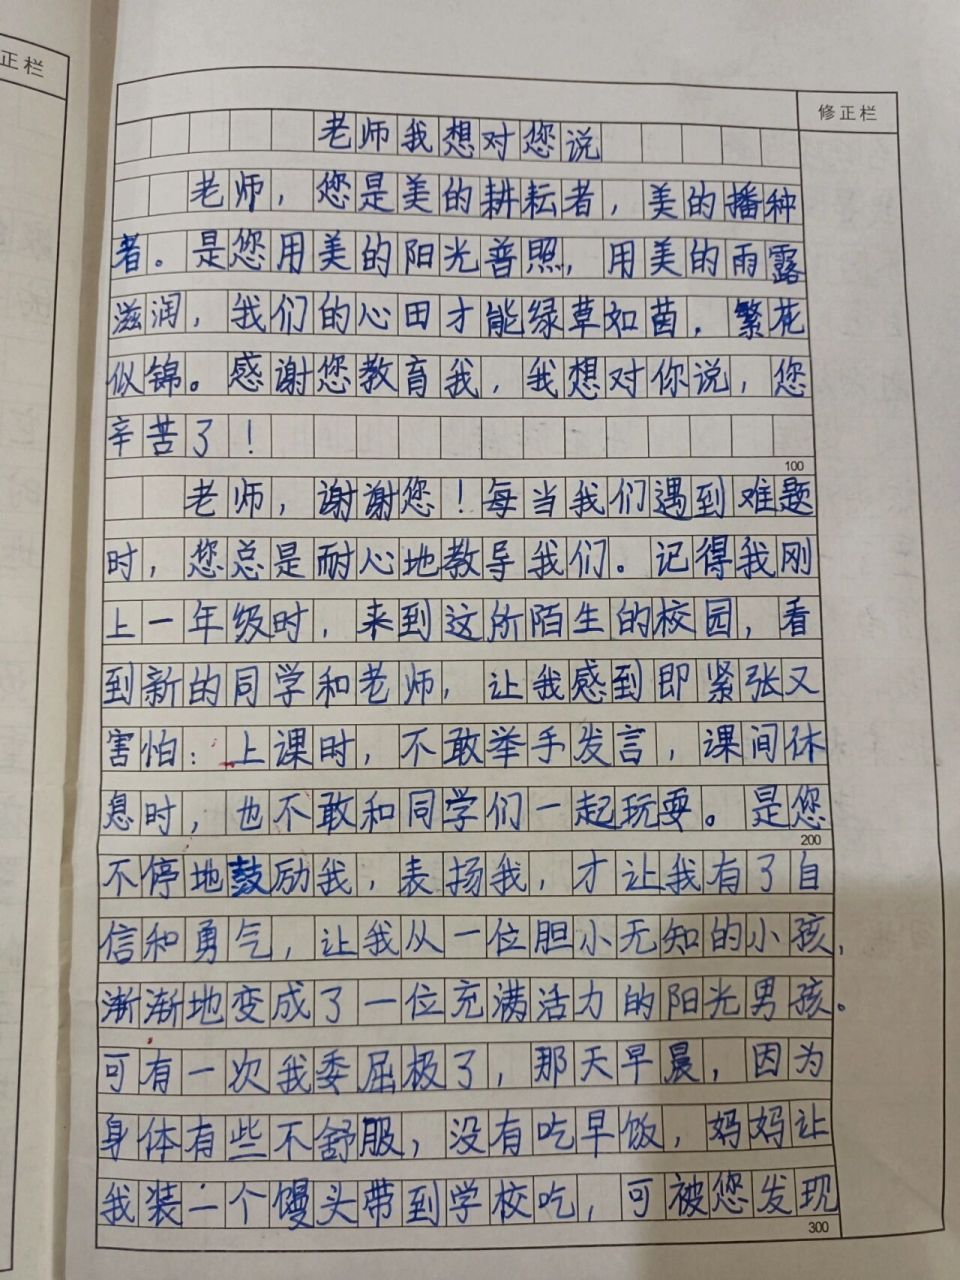 正栏
修正栏
老师我想对您说
老师，您是美的耕耘者，美的播种
者。是您用美的阳光普照，用美的雨露
滋润，我们的心田才能绿草如茵，繁花
似锦。感谢您教育我，我想对你说，您
辛苦了！
100
老师，谢谢您！每当我们遇到难题
时，您总是耐心地教导我们。记得我刚
上一年级时，来到这所陌生的校园，看
到新的同学和老师，让我感到即紧张又
害怕：上课时，不敢举手发言，课间休
息时，也不敢和同学们一起玩耍。是您
200
不停地鼓励我，表扬我，才让我有了自
信和勇气，让我从一位胆小无知的小孩，
渐渐地变成了一位充满活力的阳光男孩。
可有一次我委屈极了，那天早晨，因为
身体有些不舒服，没有吃早饭，妈妈让
我装一个馒头带到学校吃，可被您发现
300